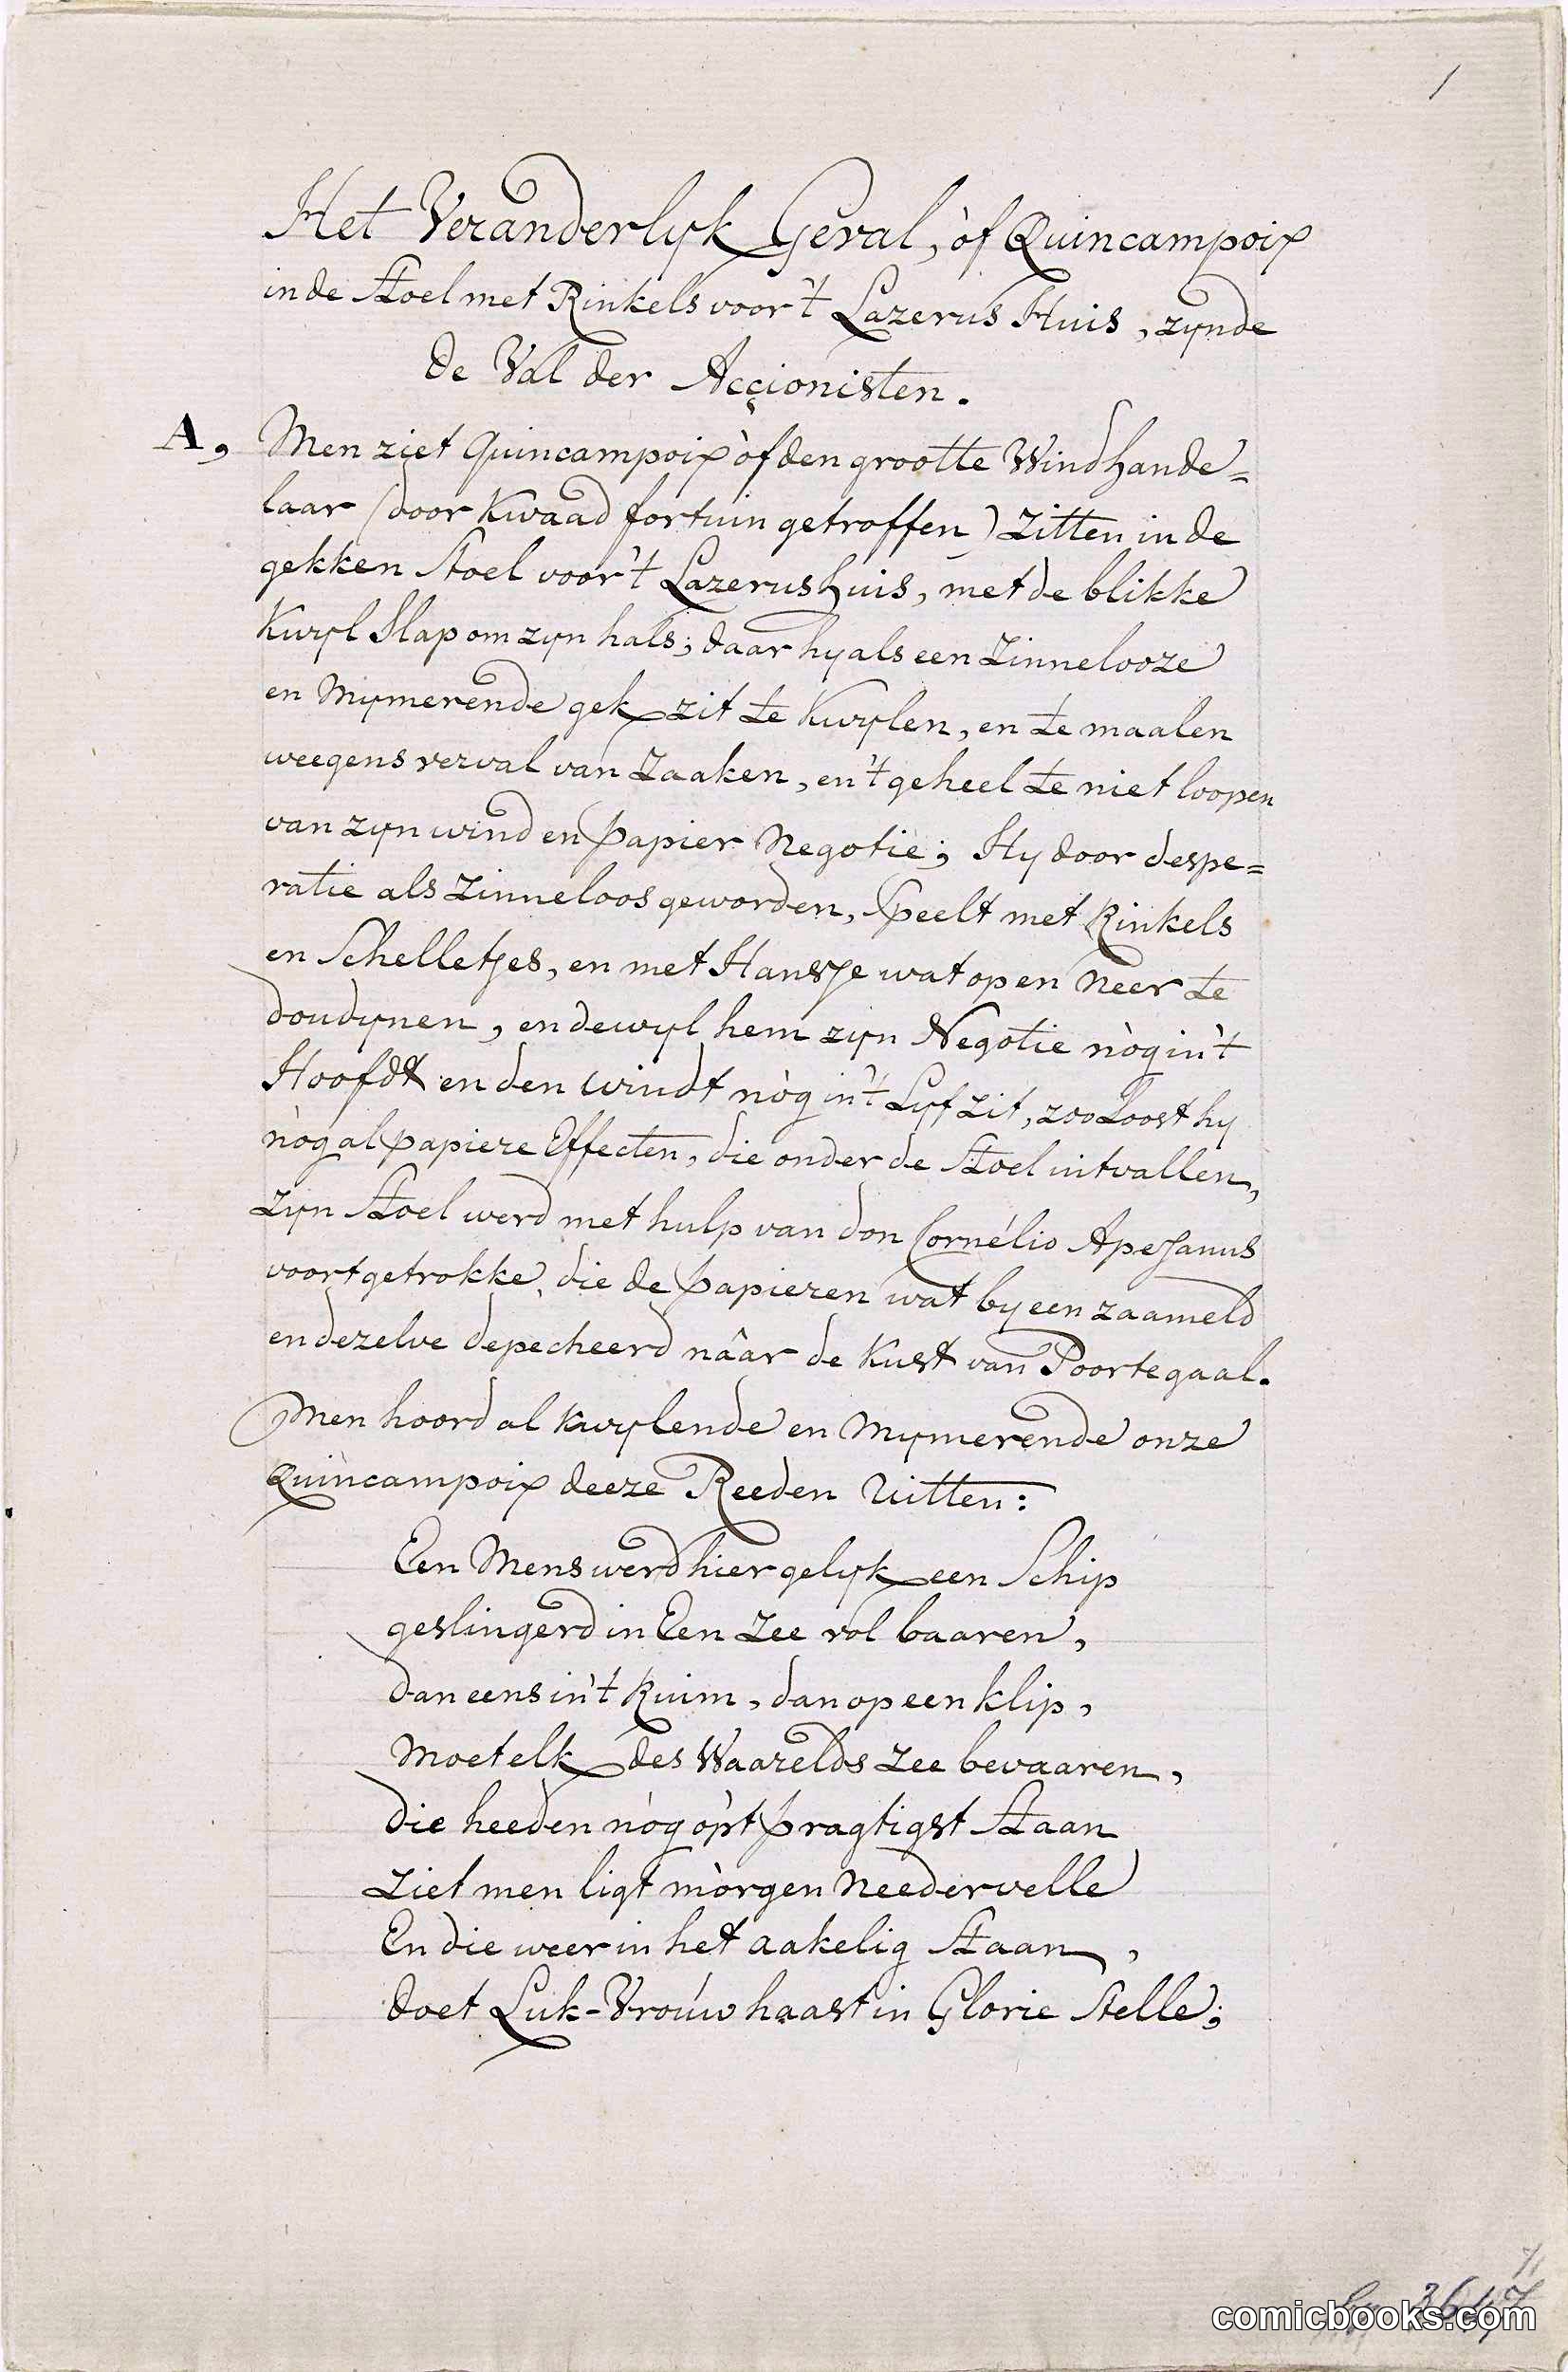 1
Het Veranderlyk Geval, òf Quincampoix
in de Stoel met Rinkels voor 't Lazerus Huis, zynde
de Val der Accionisten.
A, Men ziet Quincampoix òf den grootte Windhande=
laar (door Kwaad fortuin getroffen) zitten in de
gekken Stoel voor 't Lazerushuis, met de blikke
Kwyl Slap om zyn hals; daar hy als een Zinnelooze
en Mymerende gek zit te Kwylen, en te maalen
weegens verval van Zaaken, en 't geheel te niet loopen
van zyn wind en papier Negotie; Hy door despe=
ratie als zinneloos geworden, Speelt met Rinkels
en Schelletjes, en met Hansje wat op en Neer te
doudynen, en dewyl hem zyn Negotie nòg in 't
Hoofdt en den windt nòg in 't Lyf zit, zoo Loost hy
nòg al papiere Effecten, die onder de Stoel uitvallen,
Zyn Stoel werd met hulp van don Cornélio Apejanus
voortgetrokke, die de papieren wat by een zaameld
en dezelve depecheerd nâar de Kust van Poortegaal.
Men hoord al kwylende en Mymerende onze
Quincampoix deeze Reeden Uitten:
Een Mens werd hier gelyk een Schip
geslingerd in Een Zee vol baaren,
dan eens in 't Ruim, dan op een klip,
Moet elk des Waarelds Zee bevaaren,
die heeden nòg òp't pragtigst Staan
Ziet men ligt mòrgen Needervelle
En die weer in het aakelig Staan,
doet Luk-Vroúw haast in Glorie Stelle;
3647
comicbooks.com